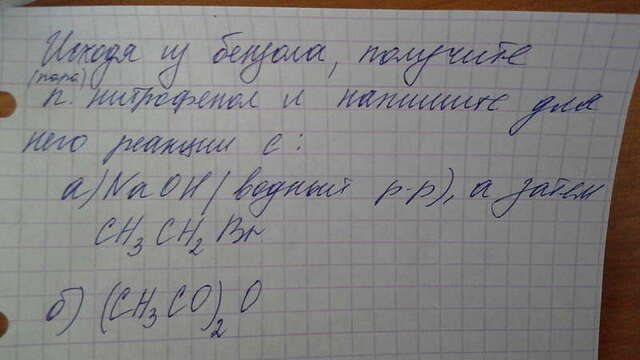 Исходя из бензола, получите
(пара)
п. нитрофенол и напишите для
него реакции с:
а) NaOH (водный р-р), а затем
CH3CH2Br
б) (CH3CO)2O